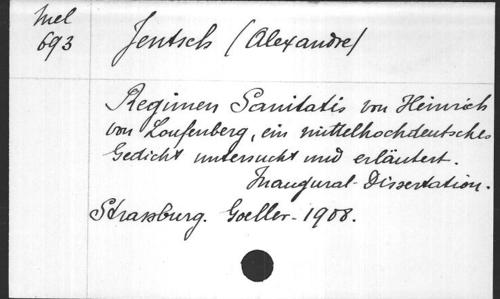 Mel
693
Jentsch (Alexandre)
Regimen Sanitatis von Heinrich
von Loufenberg, ein mittelhochdeutsches
Gedicht untersucht und erläutert.
Inaugural-Dissertation.
Strassburg. Goeller-1908.